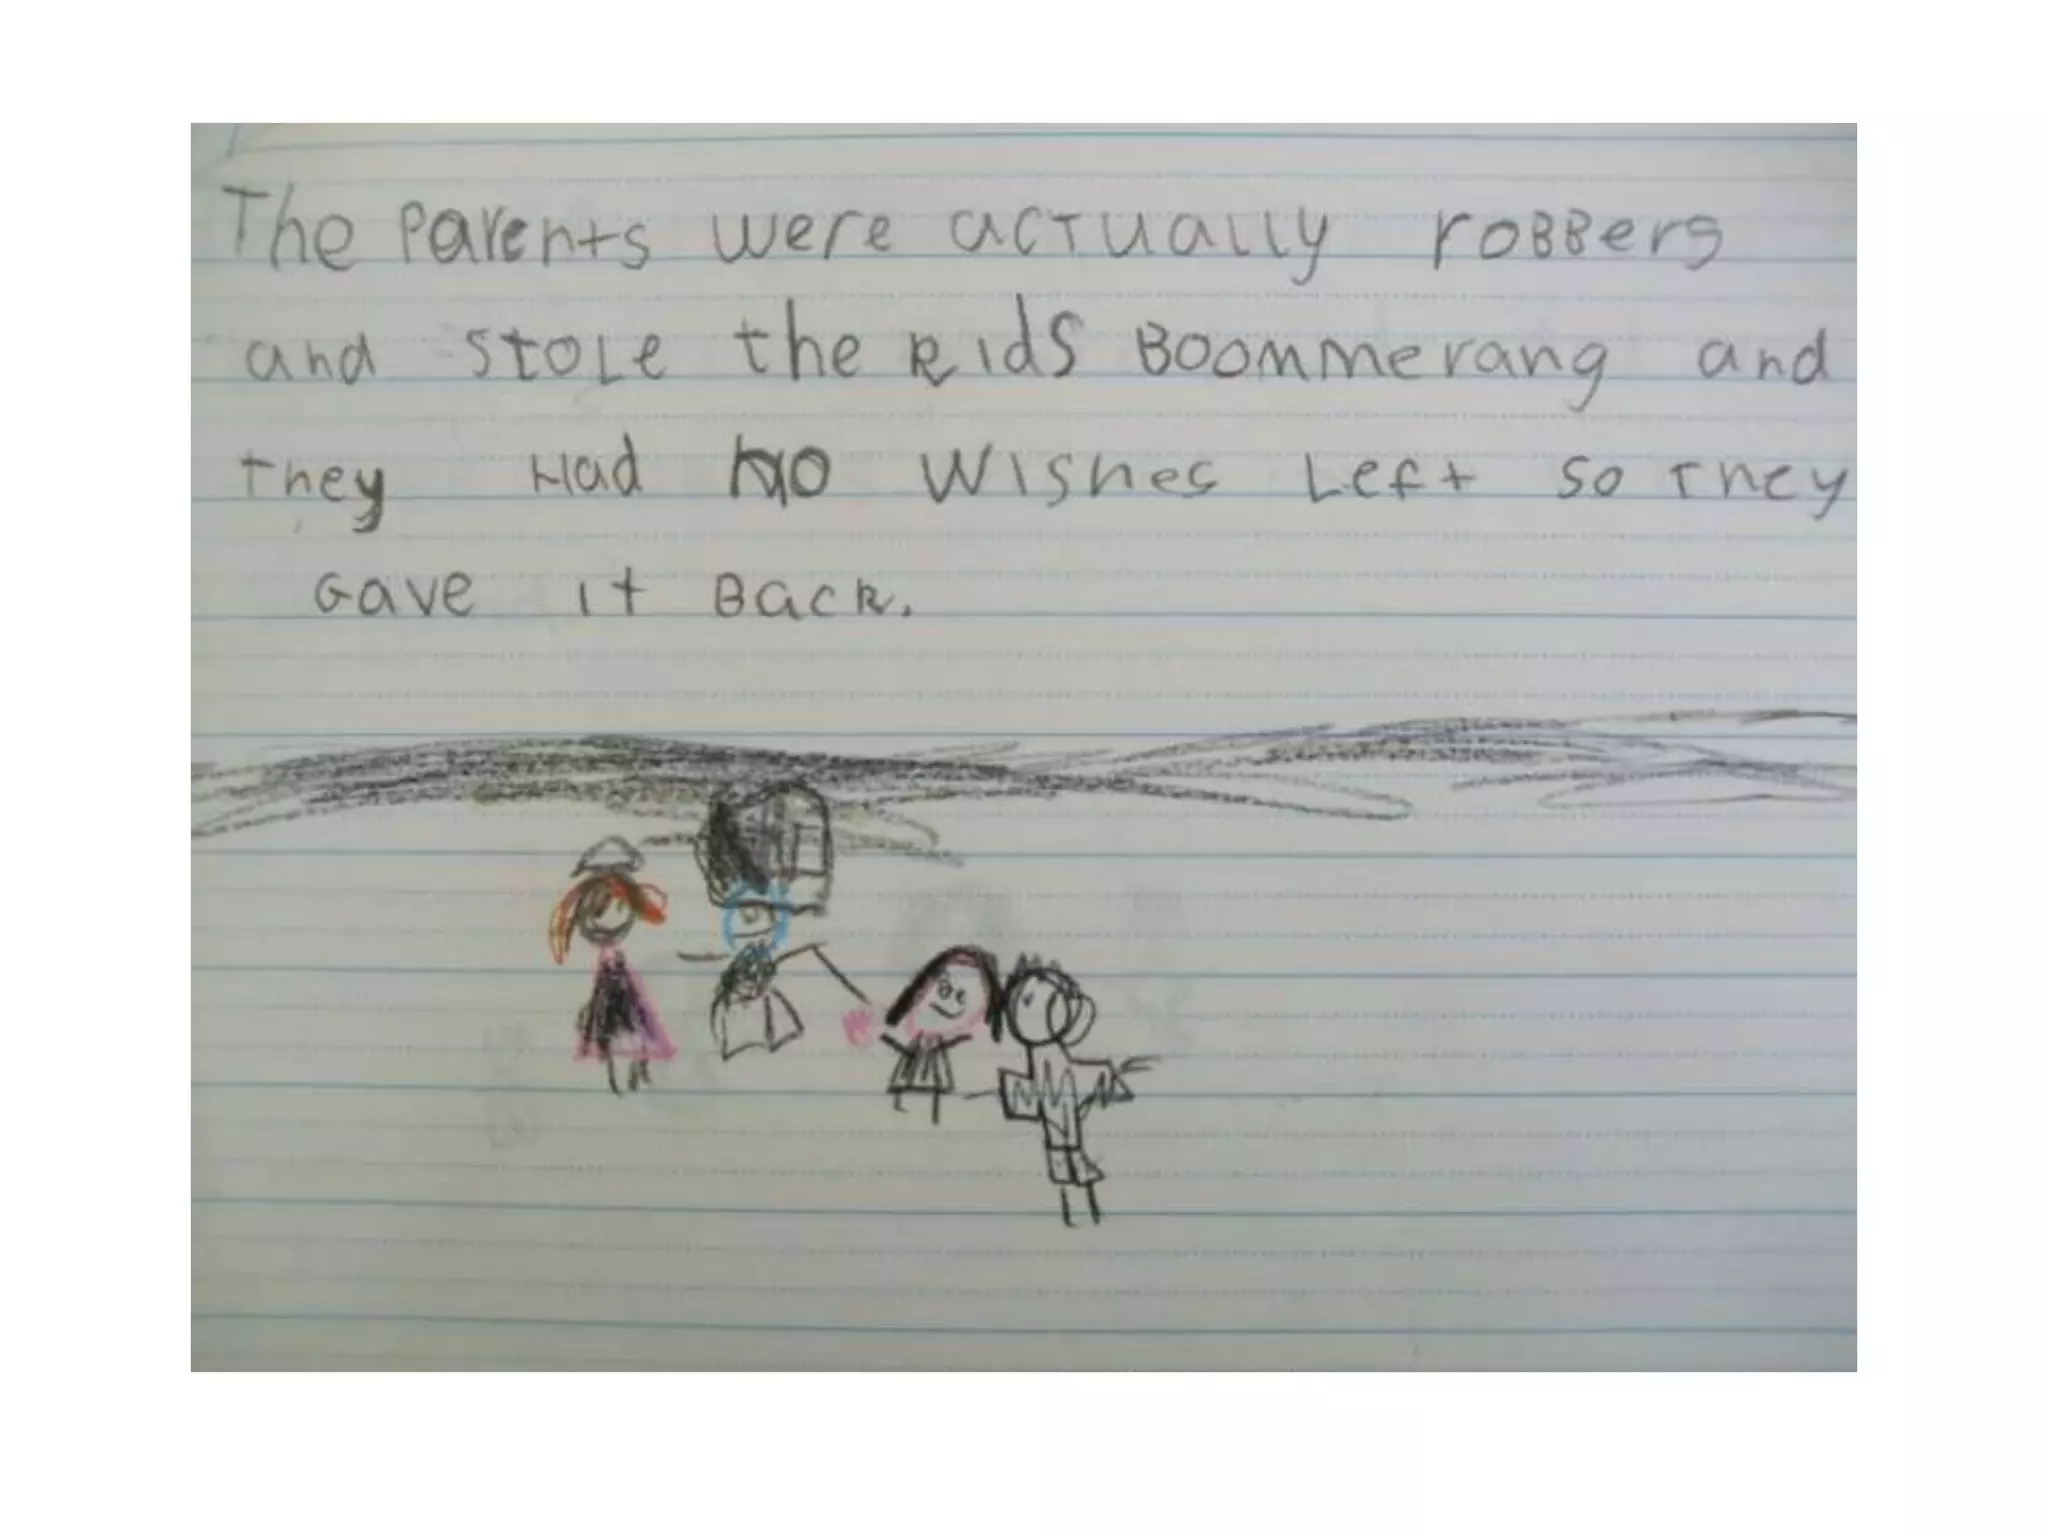 The Parents were actually roBBers
and stole the kids Boommerang and
they Had NO wishes Left so they
Gave it Back.